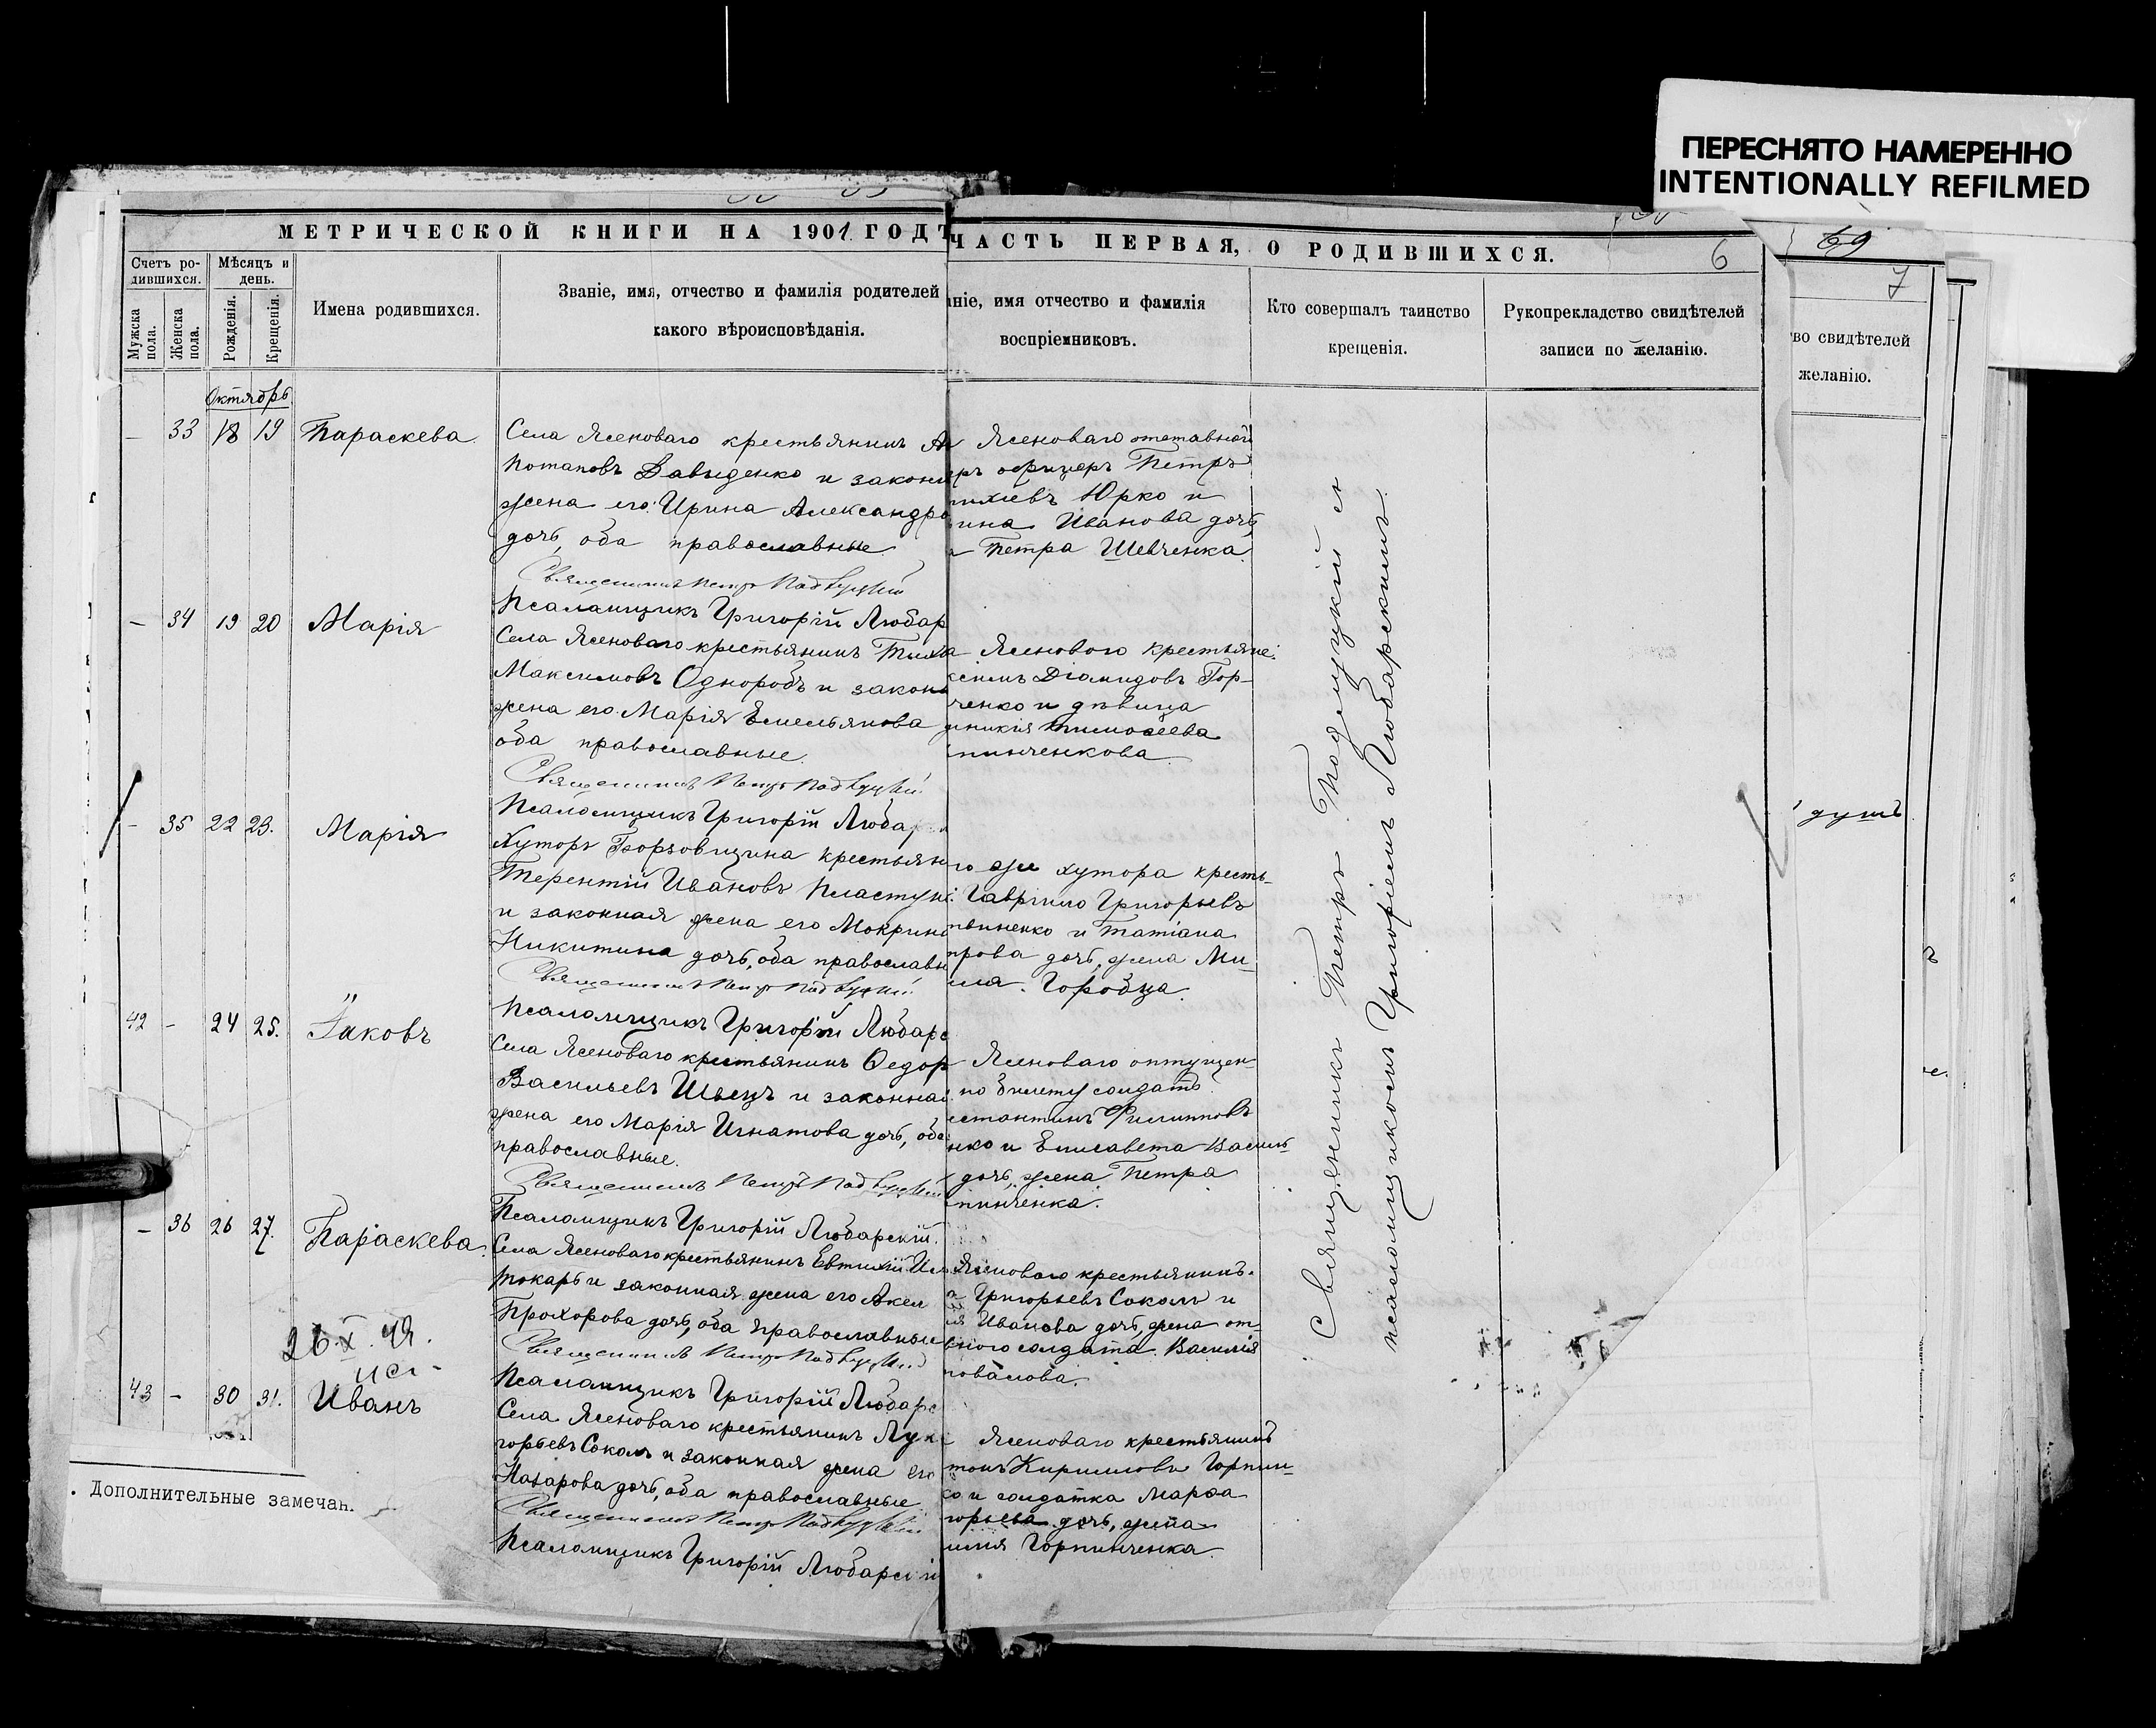 ПЕРЕСНЯТО НАМЕРЕННО
INTENTIONALLY REFILMED
МЕТРИЧЕСКОЙ КНИГИ НА 1901 ГОДЪ
ЧАСТЬ ПЕРВАЯ, О РОДИВШИХСЯ.
6
69
7
Счетъ ро-
дившихся.
Мужска
пола.
Женска
пола.
Мѣсяцъ и
день.
Рожденія.
Крещенія.
Имена родившихся.
Званіе, имя, отчество и фамилія родителей
какого вѣроисповѣданія.
ніе, имя отчество и фамилія
воспріемниковъ.
Кто совершалъ таинство
крещенія.
Рукоприкладство свидѣтелей
записи по желанію.
во свидѣтелей
желанію.
Октябрь
– 33 18 19 Параскева.
Села Ясеноваго крестьянинъ
Потаповъ Давыденко и законн
жена его Ирина Александро
дочь, оба православные
Священникъ Петръ Подлуцкій
Псаломщикъ Григорій Любар
Ясеноваго отставной
ръ офицеръ Петръ
Юрко и
ина Иванова дочь,
Петра Шевченка.
– 34 19 20 Марія
Села Ясеноваго крестьянинъ Тих
Максимовъ Однородъ и закон
жена его Марія Емельянова
оба православные.
Священникъ Петръ Подлуцкій
Псаломщикъ Григорій Любар
Ясенового крестьяне:
Діамидовъ Гор-
ченко и дѣвица
Тимоѳеева
пинченкова
– 35 22 23. Марія
Хуторъ Борзовщина крестьян
Терентій Ивановъ Пластун
и законная жена его Мокрин
Никитина дочь, оба православн
Священникъ Петръ Подлуцкій
Псаломщикъ Григорій Любарс
го же хутора кресть-
Гавріилъ Григорьевъ
виненко и Татіана
прова дочь, жена Ми-
ила Городца.
душъ
42 – 24 25. Іаковъ
Села Ясеноваго крестьянинъ Ѳедор
Васильевъ Швецъ и законная
жена его Марія Игнатова дочь, оба
православные.
Священникъ Петръ Подлуцкій
Псаломщикъ Григорій Любарскій.
Ясеноваго отпущен-
по билету солдатъ
стантинъ Филипповъ
нко и Елисавета Василь
дочь, жена Петра
пинченка.
– 36 26 27. Параскева.
Села Ясеноваго крестьянинъ Евтихій
Токарь и законная жена его Аксе
Прохорова дочь, оба православные
Священникъ Петръ Подлуцкій
Псаломщикъ Григорій Любарс
Ясеноваго крестьянинъ.
Григорьевъ Соколъ и
Иванова дочь, жена от-
вного солдата Василія
повалова.
26.X.49.
43 – 30 31. Иванъ
Села Ясеноваго крестьянинъ Лук
горьевъ Соколъ и законная жена его
Назарова дочь, оба православные.
Священникъ Петръ Подлуцкій
Псаломщикъ Григорій Любарскій
Ясеноваго крестьянинъ
тонъ Кирилловъ Горпин-
ко и солдатка Марѳа
горьева дочь, жена
Горпинченка.
Священникъ Петръ Подлуцкій съ
псаломщикомъ Григоріемъ Любарскимъ.
. Дополнительные замечан.